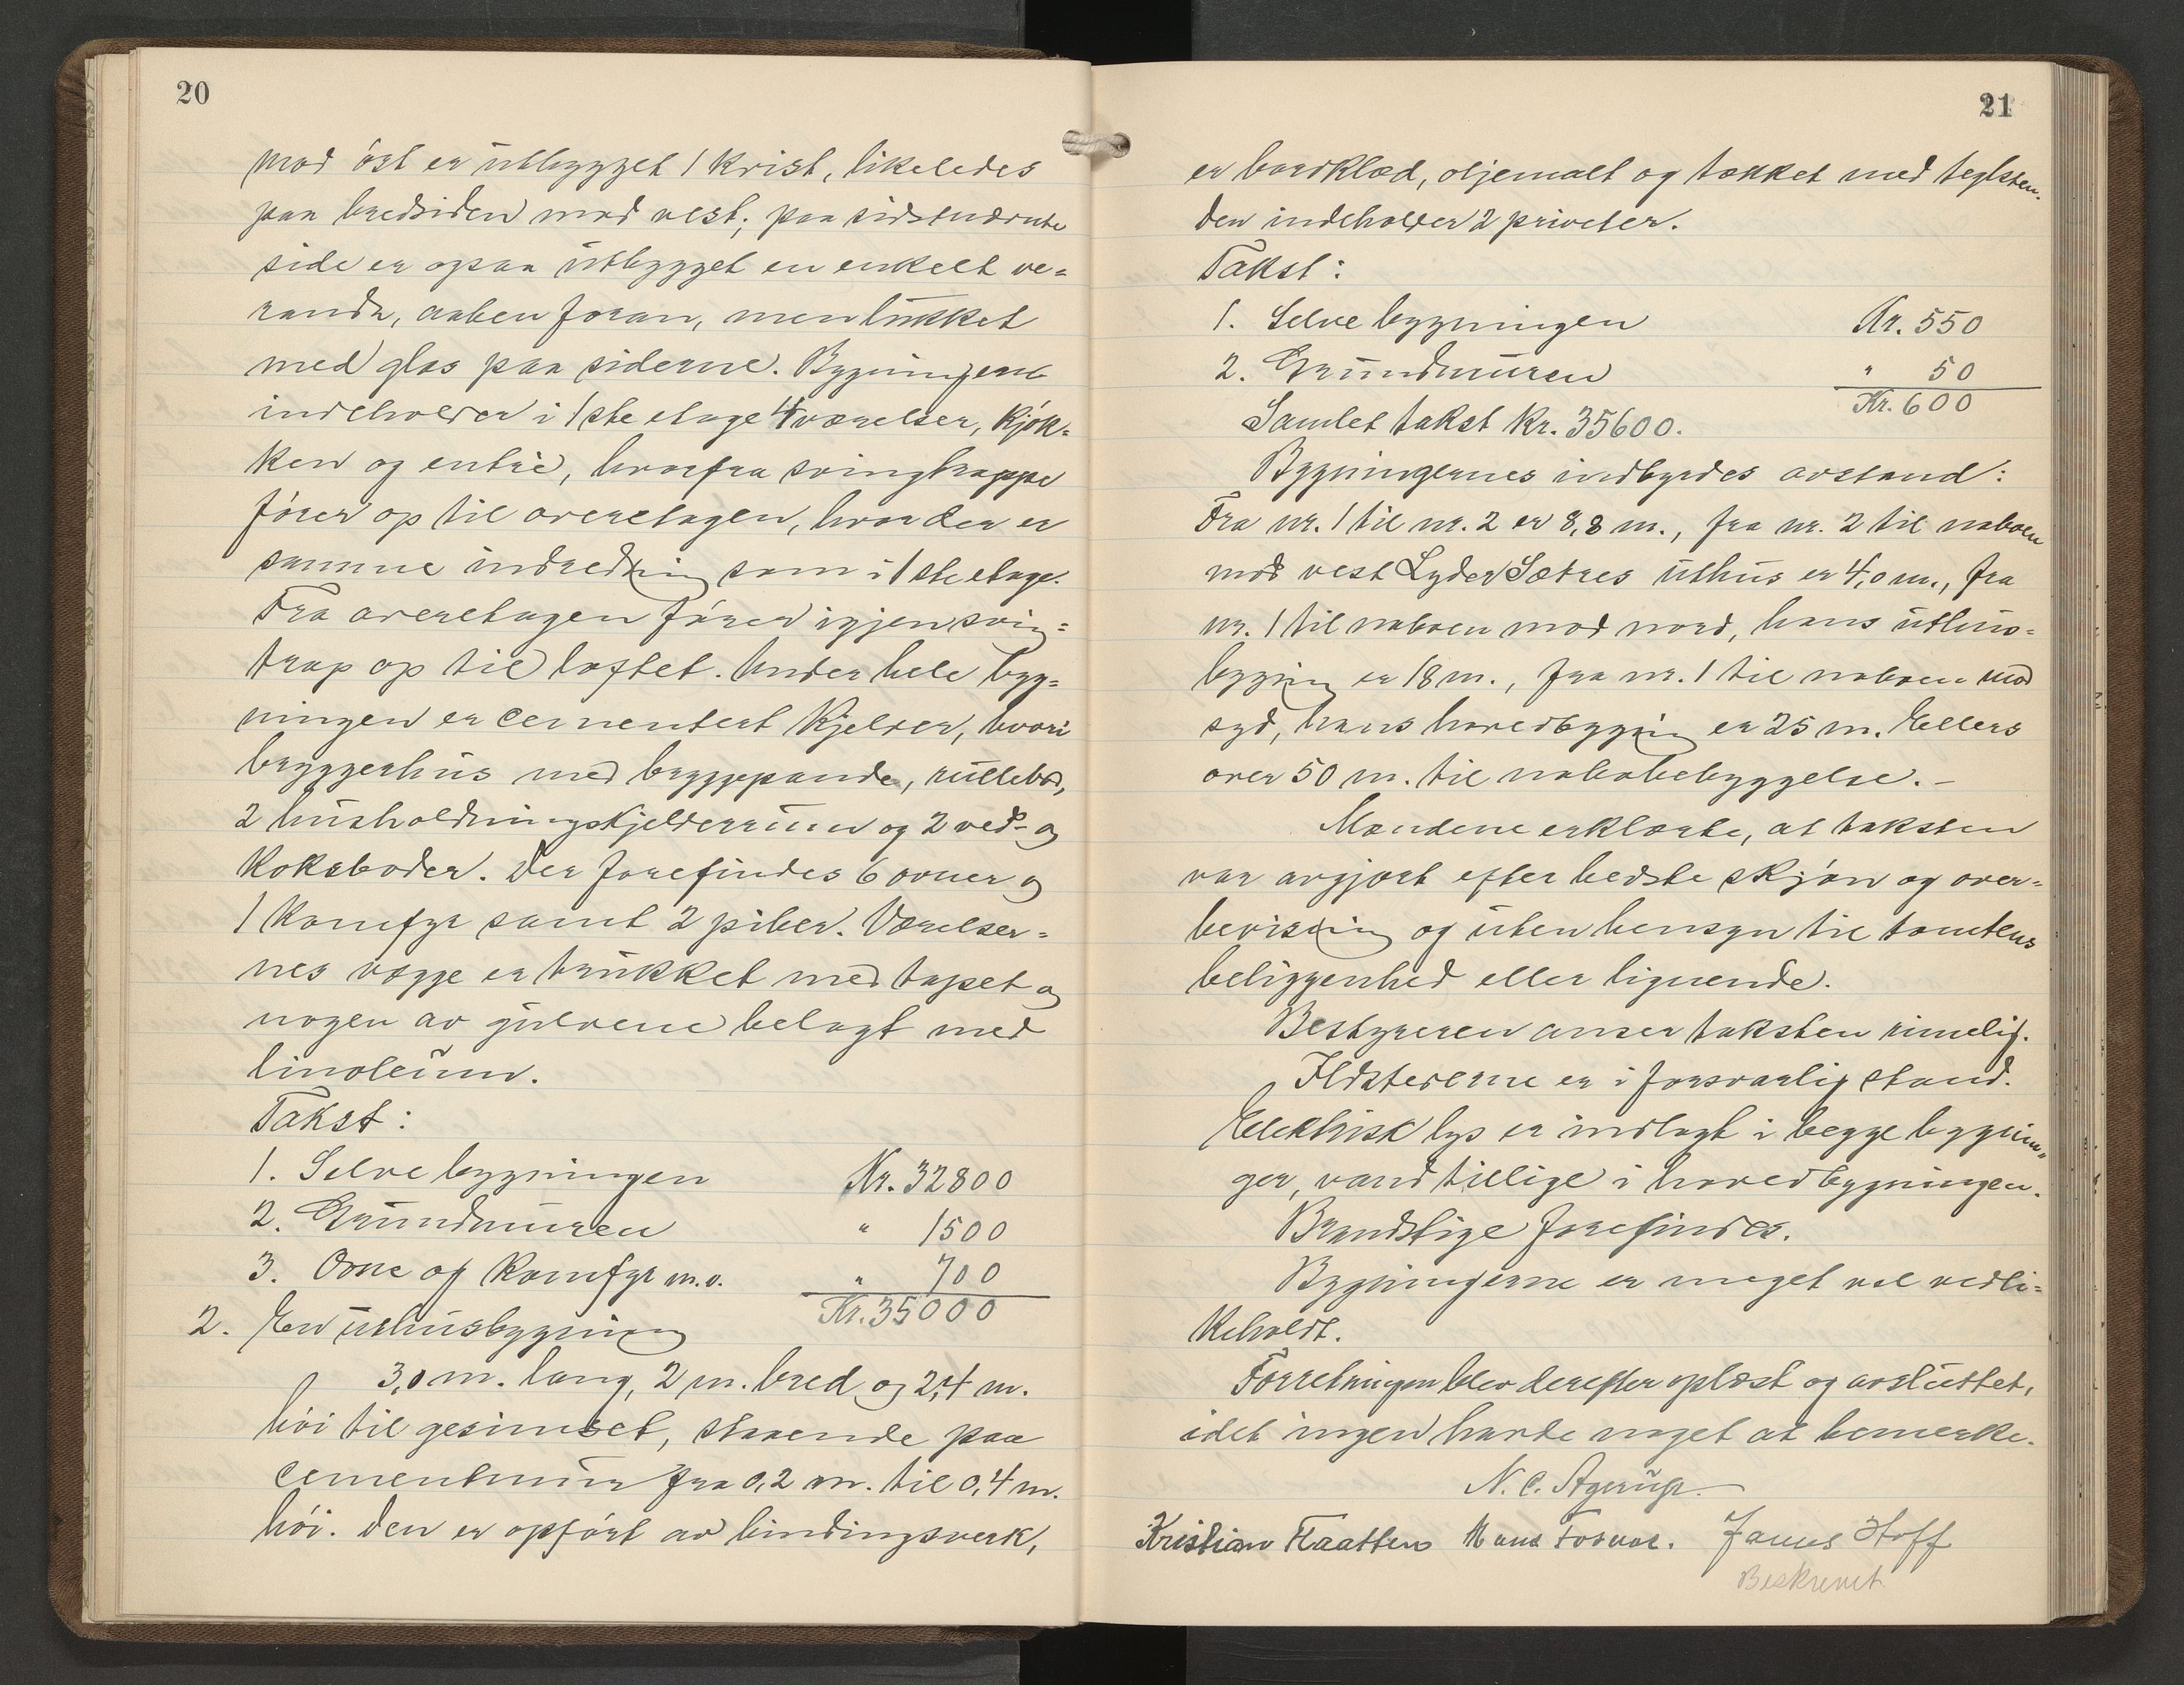 20
mod øst er utbygget 1 kvist, likeledes
paa bredsiden mod vest; paa sidstnævnte
side er ogsaa utbygget en enkelt ve=
randa, aaben foran, men lukket
med glas paa siderne. Bygningen
indeholder i 1ste etage 4 værelser, kjøk=
ken og entré, hvorfra svingtrappe
fører op til overetagen, hvor der er
samme indredning som i 1ste etage.
Fra overetagen fører igjen sving=
trap op til loftet. Under hele byg=
ningen er cementert kjelder, hvori
bryggerhus med bryggepande, rullebod,
2 husholdningskjelderrum og 2 ved- og
koksboder. Der forefindes 6 ovner og
1 komfyr samt 2 piber. Værelser=
nes vægge er trukket med tapet og
nogen av gulvene belagt med
linoleum.
Takst:
1. Selve bygningen Kr. 32800
2. Grundmuren " 1500
3. Ovne og komfyr m.v. " 700
Kr. 35000
2. En uthusbygning
3,0 m. lang, 2 m. bred og 2,4 m.
høi til gesimset, staaende paa
cementmur fra 0,2 m. til 0,4 m.
høi. Den er opført av bindingsverk,
21
er bordklæd, oljemalt og tækket med teglsten.
Den indeholder 2 priveter.
Takst:
1. Selve bygningen Kr. 550
2. Grundmuren " 50
Kr. 600
Samlet takst kr. 35600.
Bygningernes indbyrdes avstand:
Fra nr. 1 til nr. 2 er 8,8 m., fra nr. 2 til naboen
mod vest Lyder Sætres uthus er 4,0 m., fra
nr. 1 til naboen mod nord, hans uthus=
bygning er 18 m., fra nr. 1 til naboen mod
syd, hans hovedbygning er 25 m. Ellers
over 50 m. til nabobebyggelse.-
Mændene erklærte, at taksten
var avgjort efter bedste skjøn og over=
bevisning og uten hensyn til tomtens
beliggenhed eller lignende.
Bestyreren anser taksten rimelig.
Ildstederne er i forsvarlig stand.
Elektrisk lys er indlagt i begge bygnin"
ger, vand tillige i hovedbygningen.
Brandstige forefindes.
Bygningerne er meget vel vedli=
keholdt.
Forretningen blev derefter oplæst og avsluttet,
idet ingen havde noget at bemerke.
N. C. Agerup.
Kristian Flaatten Hans Fosnæs. James Hoff
Beskrevet